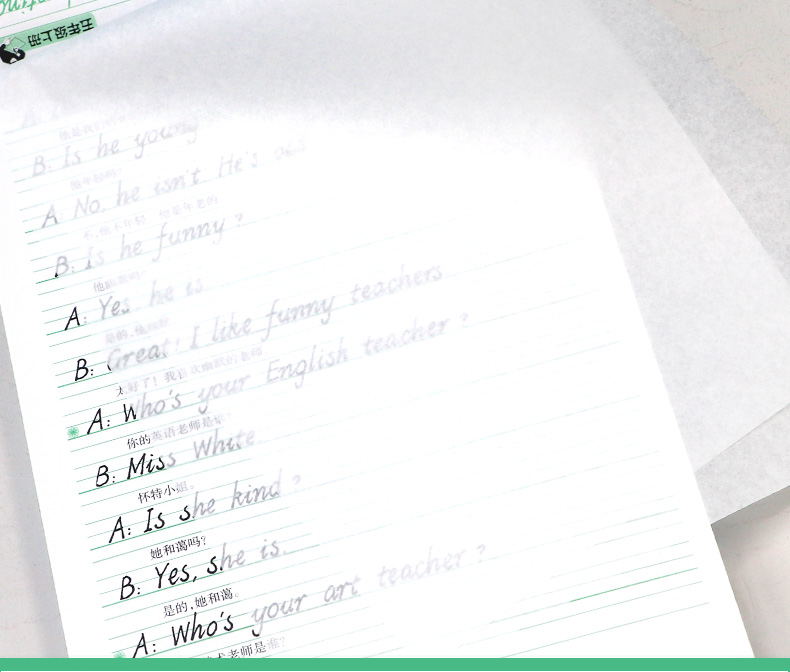 五年级上册
B: Is he young
他年轻吗?
A: No, he isn't. He's old
不,他不年轻,他是年老的
B: Is he funny?
他幽默吗?
A: Yes he is
是的,他幽默
B: Great! I like funny teachers
太好了!我喜欢幽默的老师
A: Who's your English teacher?
你的英语老师是谁?
B: Miss White
怀特小姐。
A: Is she kind?
她和蔼吗?
B: Yes, she is.
是的,她和蔼。
A: Who's your art teacher?
术老师是谁?